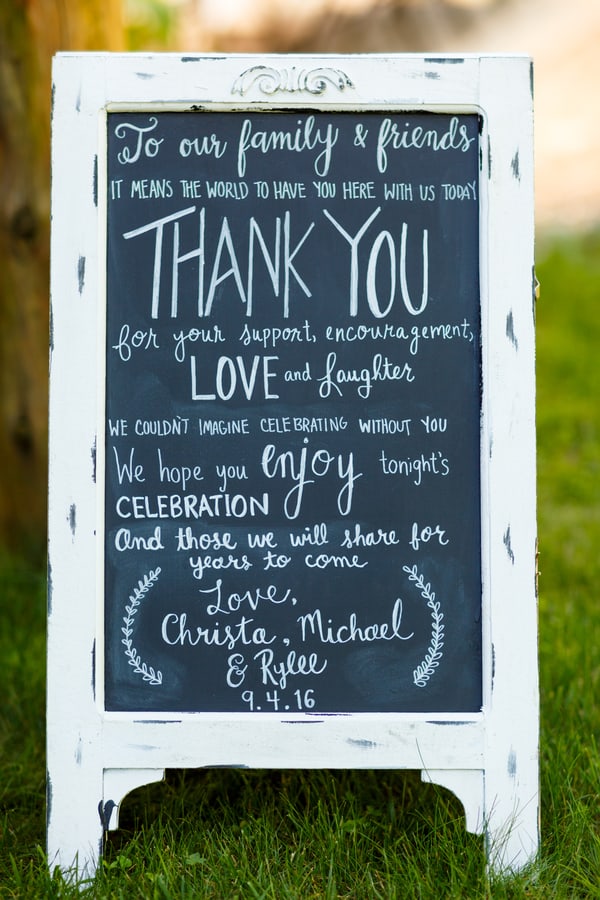 To our family & friends
IT MEANS THE WORLD TO HAVE YOU HERE WITH US TODAY
THANK YOU
for your support, encouragement,
LOVE and laughter
WE COULDN'T IMAGINE CELEBRATING WITHOUT YOU
We hope you enjoy tonight's
CELEBRATION
And those we will share for
years to come
Love,
Christa, Michael
& Rylee
9.4.16